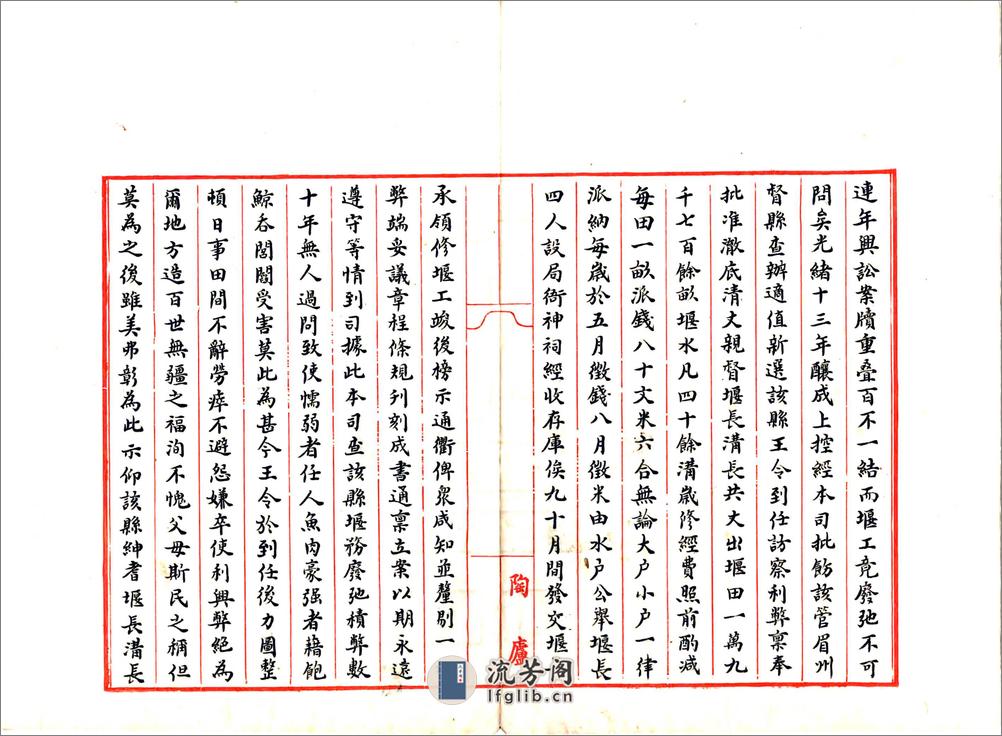 連年興訟案牘重叠百不一結而堰工竟廢弛不可
問矣光緒十三年釀成上控經本司批飭該管眉州
督縣查辦適值新選該縣王令到任訪察利弊稟奉
批准澈底清丈親督堰長溝長共丈出堰田一萬九
千七百餘畝堰水凡四十餘溝歲修經費照前酌減
每田一畝派錢八十文米六合無論大戶小戶一律
派納每歲於五月徵錢八月徵米由水戶公舉堰長
四人設局衙神祠經收存庫俟九十月間發交堰長
陶廬
承領修堰工竣後榜示通衢俾衆咸知並釐剔一切
弊端妥議章程條規刋刻成書通稟立案以期永遠
遵守等情到司據此本司查該縣堰務廢弛積弊數
十年無人過問致使懦弱者任人魚肉豪强者藉飽
鯨吞閭閻受害莫此為甚今王令於到任後力圖整
頓日事田間不辭勞瘁不避怨嫌卒使利興弊絕為
爾地方造百世無疆之福洵不愧父母斯民之稱但
莫為之後雖美弗彰為此示仰該縣紳耆堰長溝長
流芳阁
lfglib.cn